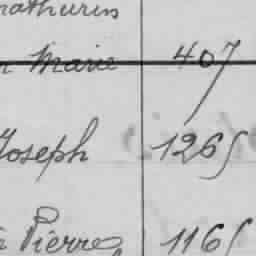 athurin
n Marie 407
Joseph 1265
Pierre 1165